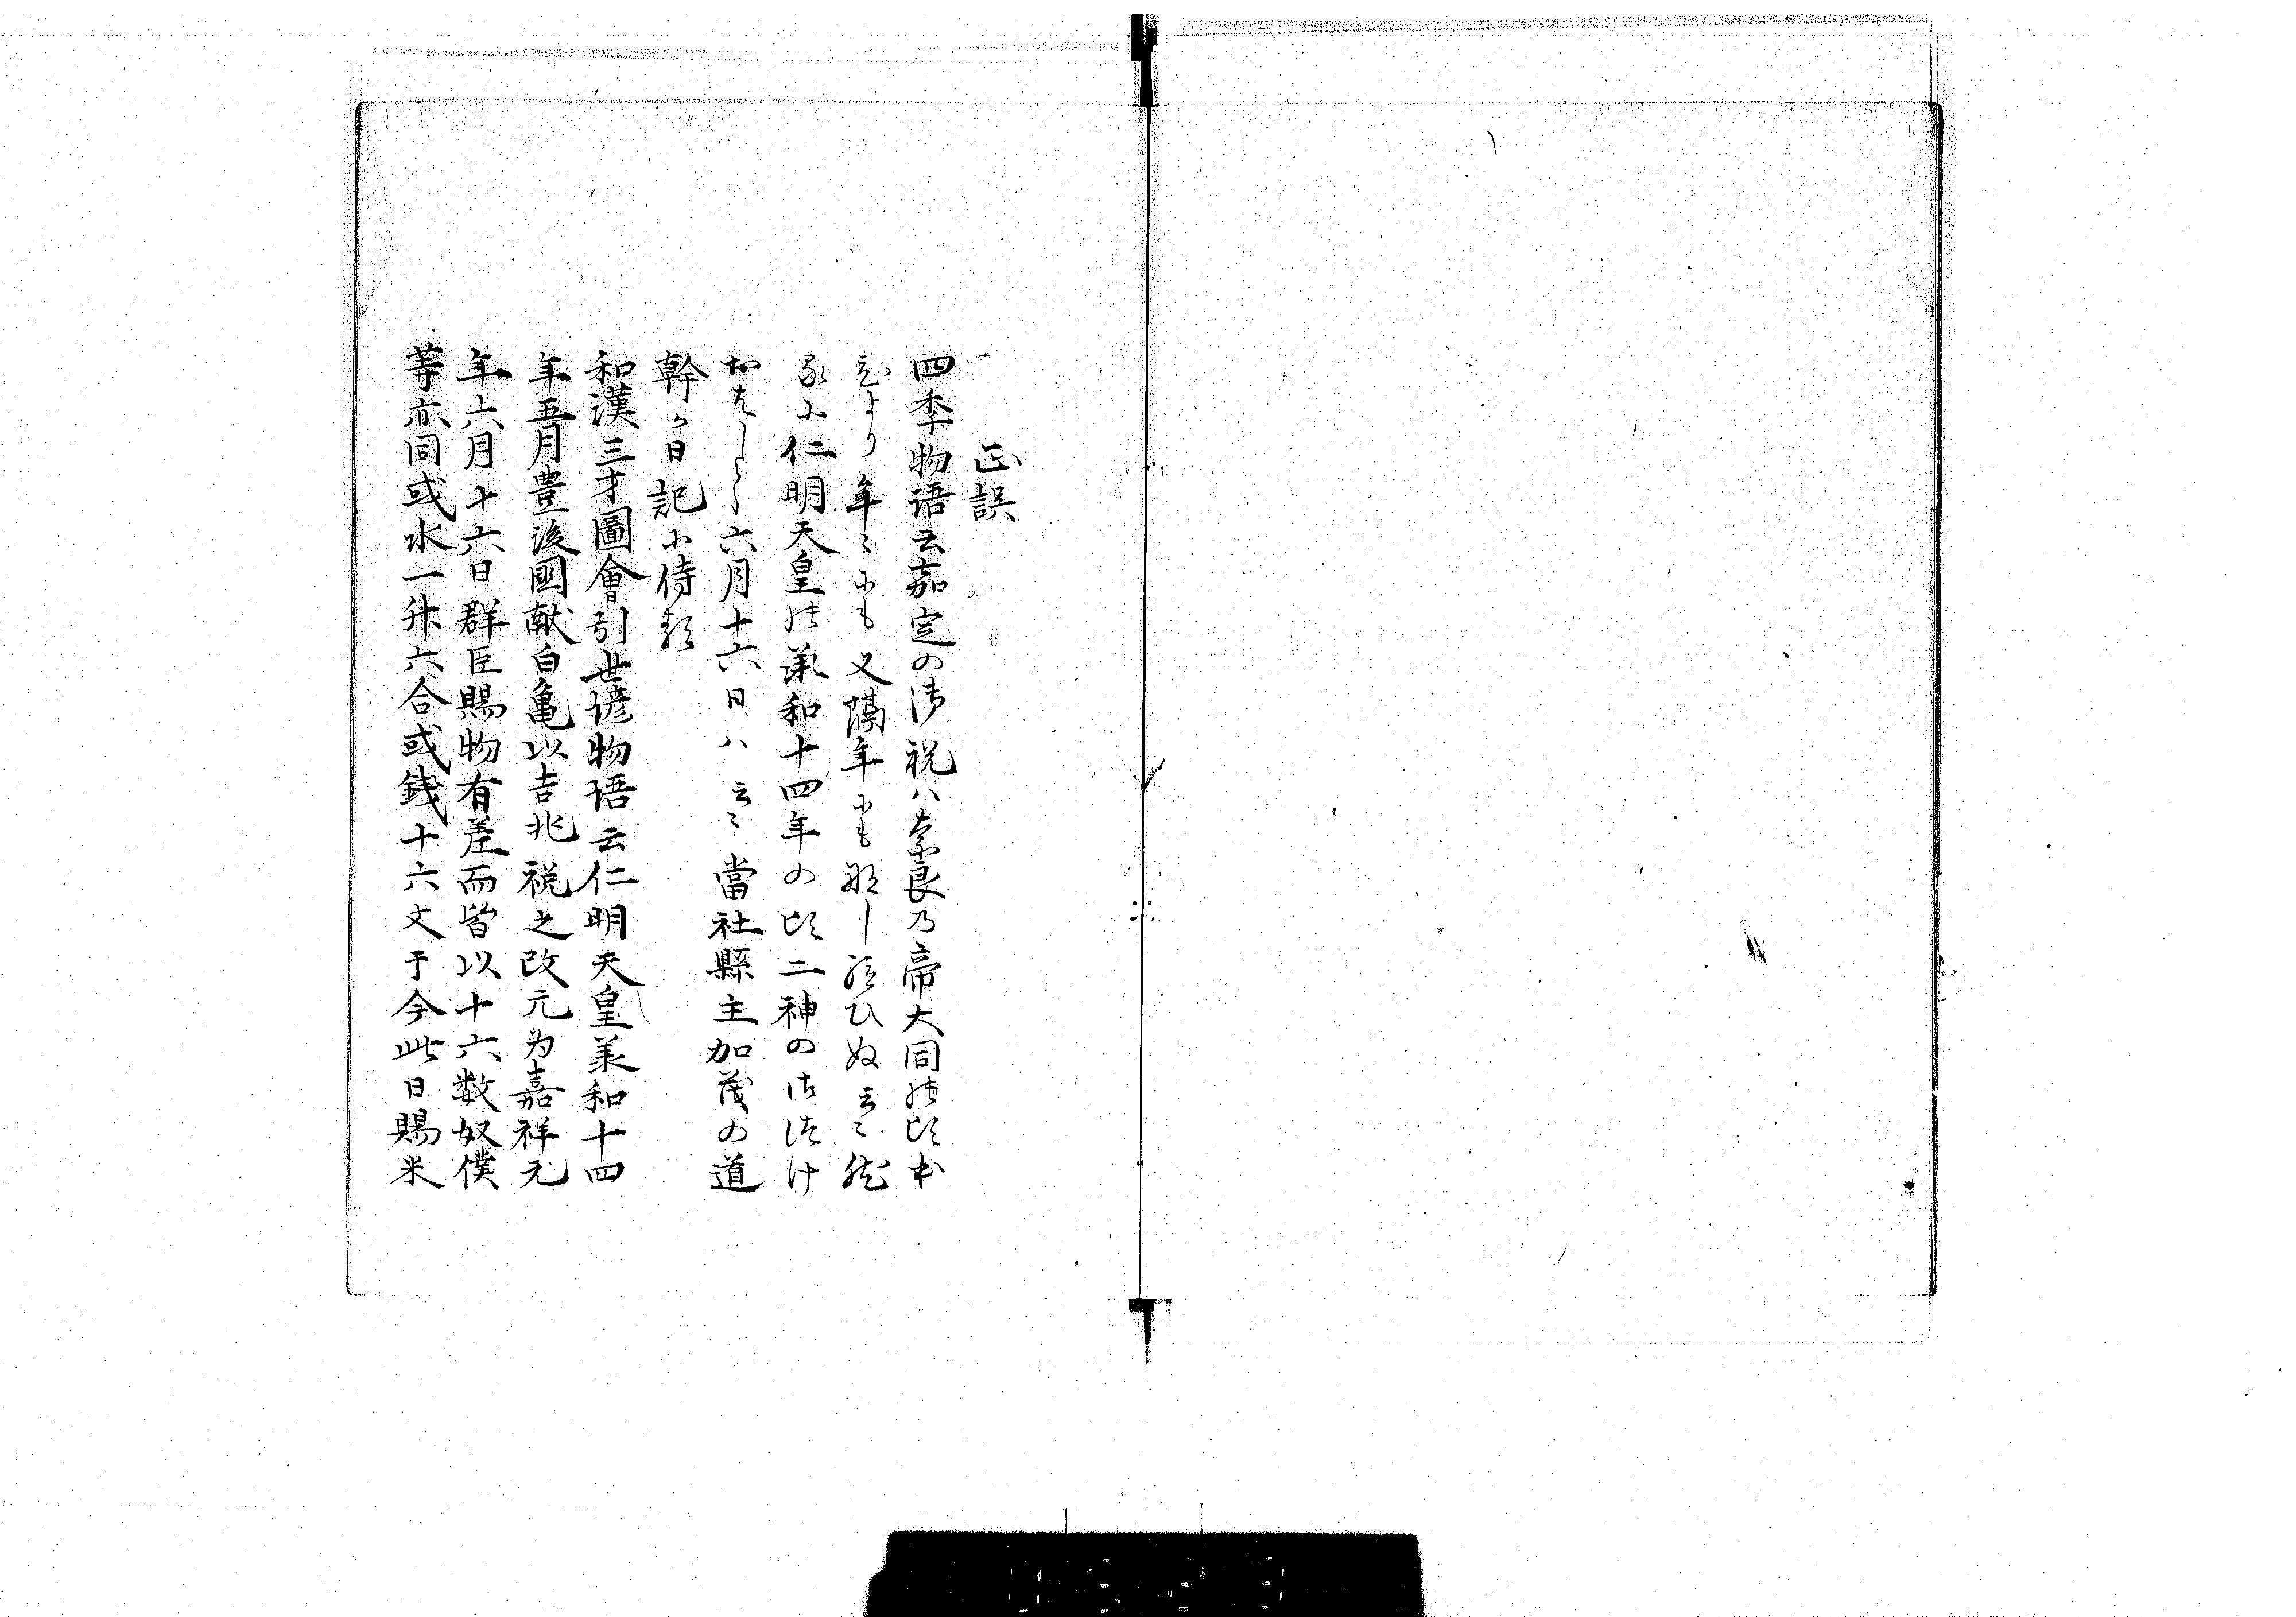 一 正誤
四季物语云嘉定の御祝ハ奈良乃帝大同の比本
より年〻にも又隔年にも那し給ひぬ云〻然
るに仁明天皇の承和十四年の比二神の御つけ
おはしまし六月十六日ハ云〻當社縣主加茂の道
幹か日記に侍る
和漢三才圖會引世諺物语云仁明天皇承和十四
年五月豊後國献白亀以吉兆祝之改元为嘉祥元
年六月十六日群臣賜物有差而皆以十六数奴僕
等亦同或水一升六合或錢十六文于今此日賜米